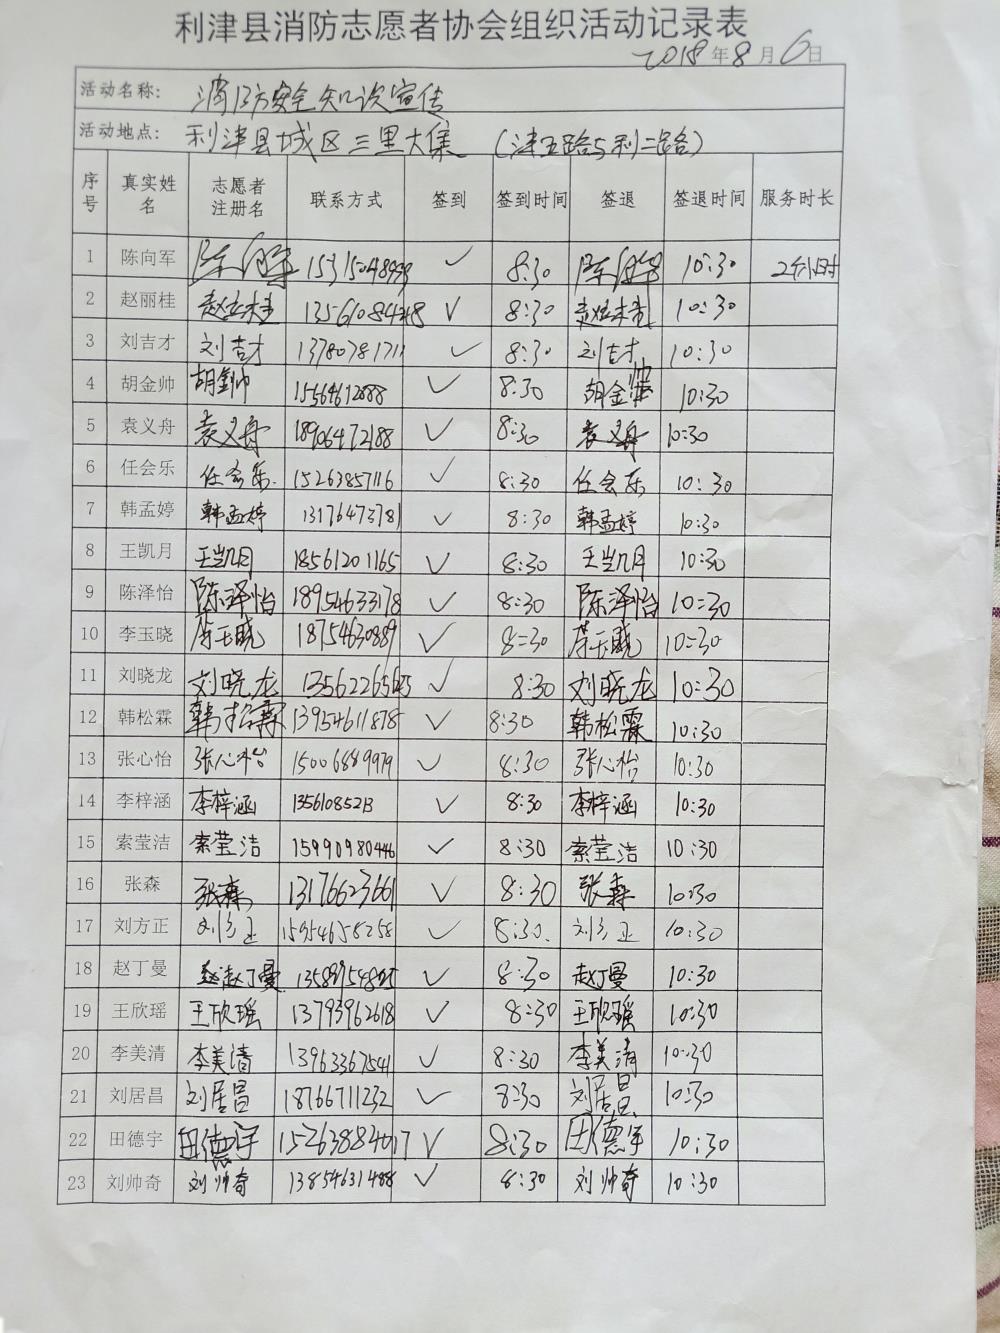 利津县消防志愿者协会组织活动记录表
2018年8月6日
活动名称: 消防安全知识宣传
活动地点: 利津县城区三里大集 (津五路与利二路)
序号 真实姓名 志愿者注册名 联系方式 签到 签到时间 签退 签退时间 服务时长
1 陈向军 陈向军 ✓ 8:30 陈向军 10:30 2个小时
2 赵丽桂 赵丽桂 ✓ 8:30 赵丽桂 10:30
3 刘吉才 刘吉才 13780781711 ✓ 8:30 刘吉才 10:30
4 胡金帅 胡金帅 15564612888 ✓ 8:30 胡金帅 10:30
5 袁义舟 袁义舟 18906472188 ✓ 8:30 袁义舟 10:30
6 任会乐 任会乐. 15263857116 ✓ 8:30 任会乐 10:30
7 韩孟婷 韩孟婷 13176473781 ✓ 8:30 韩孟婷 10:30
8 王凯月 王凯月 18561201165 ✓ 8:30 王凯月 10:30
9 陈泽怡 陈泽怡 18954633178 ✓ 8:30 陈泽怡 10:30
10 李玉晓 李玉晓 18754630889 ✓ 8:30 李玉晓 10:30
11 刘晓龙 刘晓龙 ✓ 8:30 刘晓龙 10:30
12 韩松霖 韩松霖 13954611878 ✓ 8:30 韩松霖 10:30
13 张心怡 张心怡 15006889979 ✓ 8:30 张心怡 10:30
14 李梓涵 李梓涵 ✓ 8:30 李梓涵 10:30
15 索莹洁 索莹洁 15990980446 ✓ 8:30 索莹洁 10:30
16 张森 张森 13176623661 ✓ 8:30 张森 10:30
17 刘方正 刘方正 15954658258 ✓ 8:30. 刘方正 10:30
18 赵丁曼 赵丁曼 ✓ 8:30 赵丁曼 10:30
19 王欣瑶 王欣瑶 13793962618 ✓ 8:30 王欣瑶 10:30
20 李美清 李美清 13963367541 ✓ 8:30 李美清 10:30
21 刘居昌 刘居昌 18766711232 ✓ 8:30 刘居昌 10:30
22 田德宇 田德宇 15263884017 ✓ 8:30 田德宇 10:30
23 刘帅奇 刘帅奇 13854631488 ✓ 8:30 刘帅奇 10:30